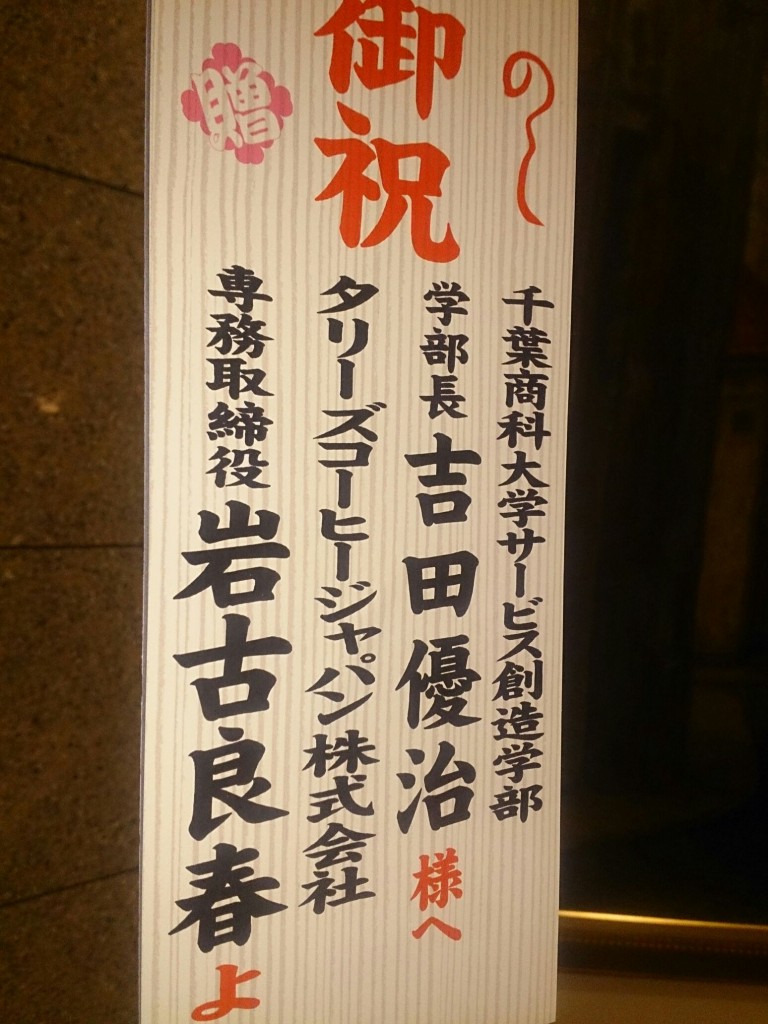 のし
御祝
贈
千葉商科大学サービス創造学部
学部長 吉田優治 様へ
タリーズコーヒージャパン株式会社
専務取締役 岩古良春 よ